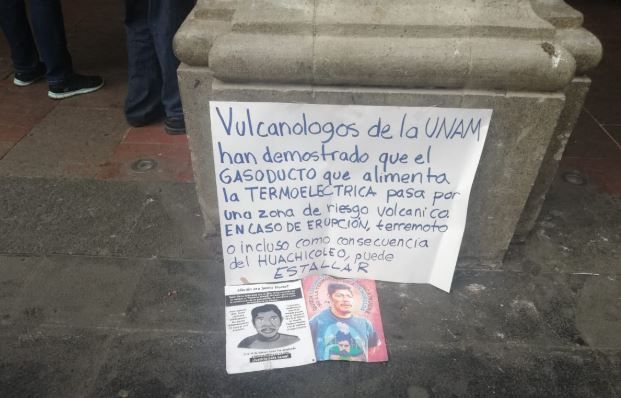 Vulcanologos de la UNAM
han demostrado que el
GASODUCTO que alimenta
la TERMOELECTRICA pasa por
una zona de riesgo volcanica
EN CASO DE ERUPCIÓN, terremoto
o incluso como consecuencia
del HUACHICOLEO, puede
ESTALLAR